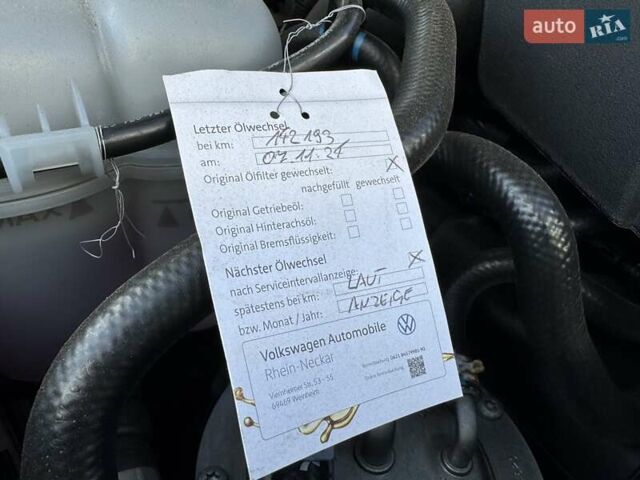 auto RIA.com
Letzter Ölwechsel
bei km: 142 193
am: 07.11.24
Original Ölfilter gewechselt: X
nachgefüllt gewechselt
Original Getriebeöl:
Original Hinterachsöl:
Original Bremsflüssigkeit:
Nächster Ölwechsel
nach Serviceintervallanzeige: X
spätestens bei km: LAUT
bzw. Monat / Jahr: ANZEIGE
Volkswagen Automobile
Rhein-Neckar
Viernheimer Str. 53-55
69469 Weinheim
MAX